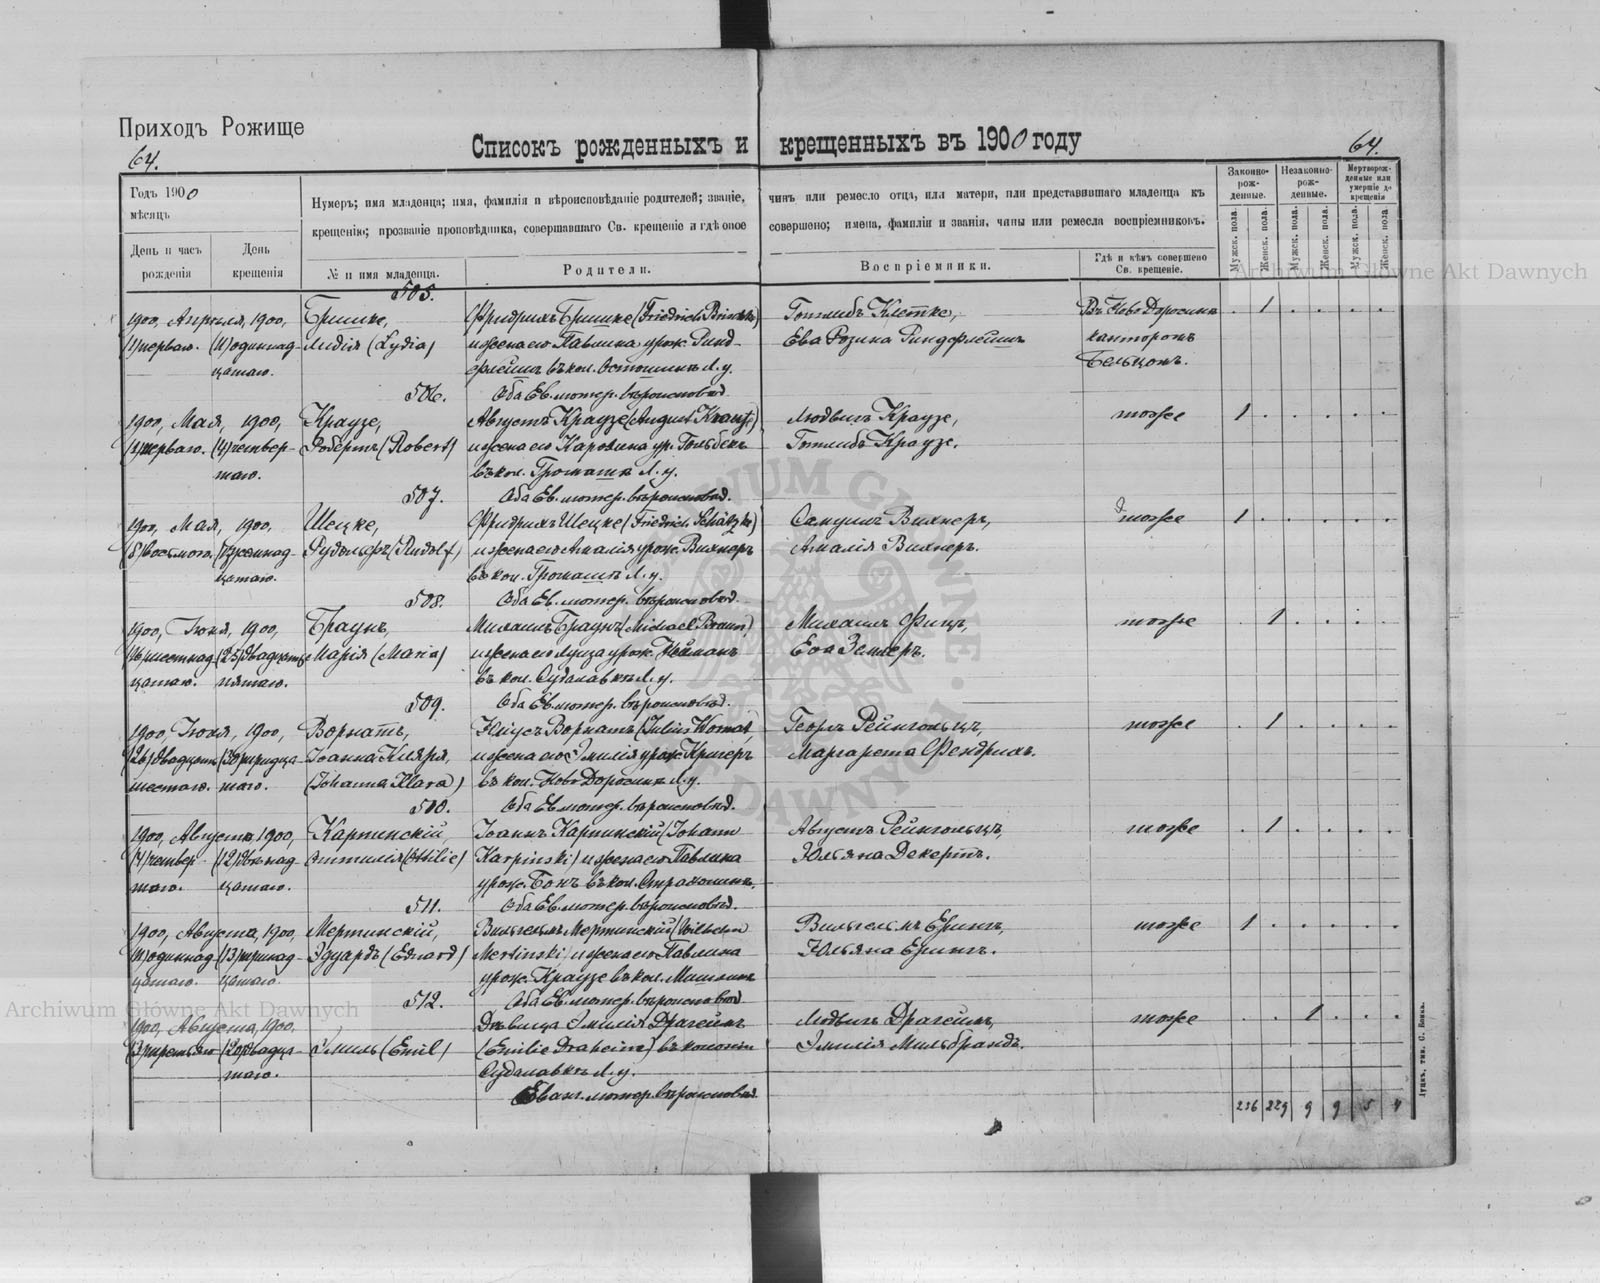 Приходъ Рожище
64.
Списокъ рожденныхъ и крещенныхъ въ 1900 году
64.
Годъ 1900
мѣсяцъ
День и часъ рожденія
День крещенія
Нумеръ; имя младенца; имя, фамилія и вѣроисповѣданіе родителей; званіе, чинъ или ремесло отца, или матери, или представившаго младенца къ
крещенію; прозваніе проповѣдника, совершавшаго Св. крещеніе и гдѣ оное совершено; имена, фамиліи и званія, чины или ремесла воспріемниковъ.
№ и имя младенца.
Родители.
Воспріемники.
Гдѣ и кѣмъ совершено Св. крещеніе.
Законно-рож-денные.
Незаконно-рож-денные.
Мертворож-денные или умершіе до крещенія
Мужск. пола.
Женск. пола.
Мужск. пола.
Женск. пола.
Мужск. пола.
Женск. пола.
505.
1900, Апрѣля, 1900, Бришке, Фридрихъ Бришке (Friedrich Brischke) Готлибъ Клетке, Въ Ново Доросинѣ . 1 . . . .
(1) перваго. (11) одиннад- Лидія (Lydia) и жена его Павлина урож. Ринд- Ева Розина Риндфлейшъ канторомъ
цатаго. флейшъ въ кол. Л. у. Бельцомъ.
506. Оба Ев. лютер. вѣроисповѣд.
1900, Мая, 1900, Краузе, Августъ Краузе (August Krause) Людвигъ Краузе, тоже 1 . . . . .
(1) перваго. (4) четвер- Робертъ (Robert) и жена его Каролина ур. Гольбекъ Готлибъ Краузе.
таго. въ кол. Л. у.
507. Оба Ев. лютер. вѣроисповѣд.
1900, Мая, 1900, Шецке, Фридрихъ Шецке (Friedrich Schätzke) Самуилъ Вихнеръ, тоже 1 . . . . .
(8) восьмого. Рудольфъ (Rudolf) и жена его Амалія урож. Вихнеръ Амалія Вихнеръ.
цатаго. въ кол. Л. у.
508. Оба Ев. лютер. вѣроисповѣд.
1900, Іюня, 1900, Браунъ, Михаилъ Браунъ (Michael Braun), Михаилъ Фицъ, тоже . 1 . . . .
(16) шестнад- (25) двадцать Марія (Maria) и жена его Луиза урож. Нейманъ Ева Землеръ.
цатаго. пятаго. въ кол. Судолавкѣ Л. у.
509. Оба Ев. лютер. вѣроисповѣд.
1900, Іюня, 1900, Ворнатъ, Юліусъ Ворнатъ (Julius Wornat) Георгъ Рейнгольцъ, тоже . 1 . . . .
(26) двадцать (30) тридца- Іоанна Кляра, и жена его Эмилія урож. Кригеръ Маргарета Фендрихъ.
шестаго. таго. (Johanna Klara) въ кол. Ново Доросинѣ Л. у.
510. Оба Ев. лютер. вѣроисповѣд.
1900, Августа, 1900, Карпинскій, Іоаннъ Карпинскій (Johann Августъ Рейнгольцъ, тоже . 1 . . . .
(4) четвер- (12) двѣнад- Оттилія (Ottilie) Karpinski) и жена его Павлина Юльяна Декертъ.
таго. цатаго. урож. Бонъ въ кол.
511. Оба Ев. лютер. вѣроисповѣд.
1900, Августа, 1900, Мертинскій, Вильгельмъ Мертинскій (Wilhelm Вильгельмъ тоже 1 . . . . .
(11) одиннад- (13) тринад- Эдуардъ (Eduard) Mertinski) и жена его Павлина Юльяна
цатаго. цатаго. урож. Краузе въ кол.
512. Оба Ев. лютер. вѣроисповѣд.
1900, Августа, 1900. Дѣвица Эмилія Драгеймъ Людвигъ Драгеймъ, тоже . . 1 . . .
(3) третьяго (20) двадца- Эмиль (Emil) (Emilie Draheim) въ колоніи Эмилія Мильбрандъ.
таго. Судолавкѣ Л. у.
Еванг. лютер. вѣроисповѣд.
236 229 9 9 5 4
Луцкъ, тип. С. Бонка.
Archiwum Główne Akt Dawnych
Archiwum Główne Akt Dawnych
ARCHIWUM GŁÓWNE AKT DAWNYCH